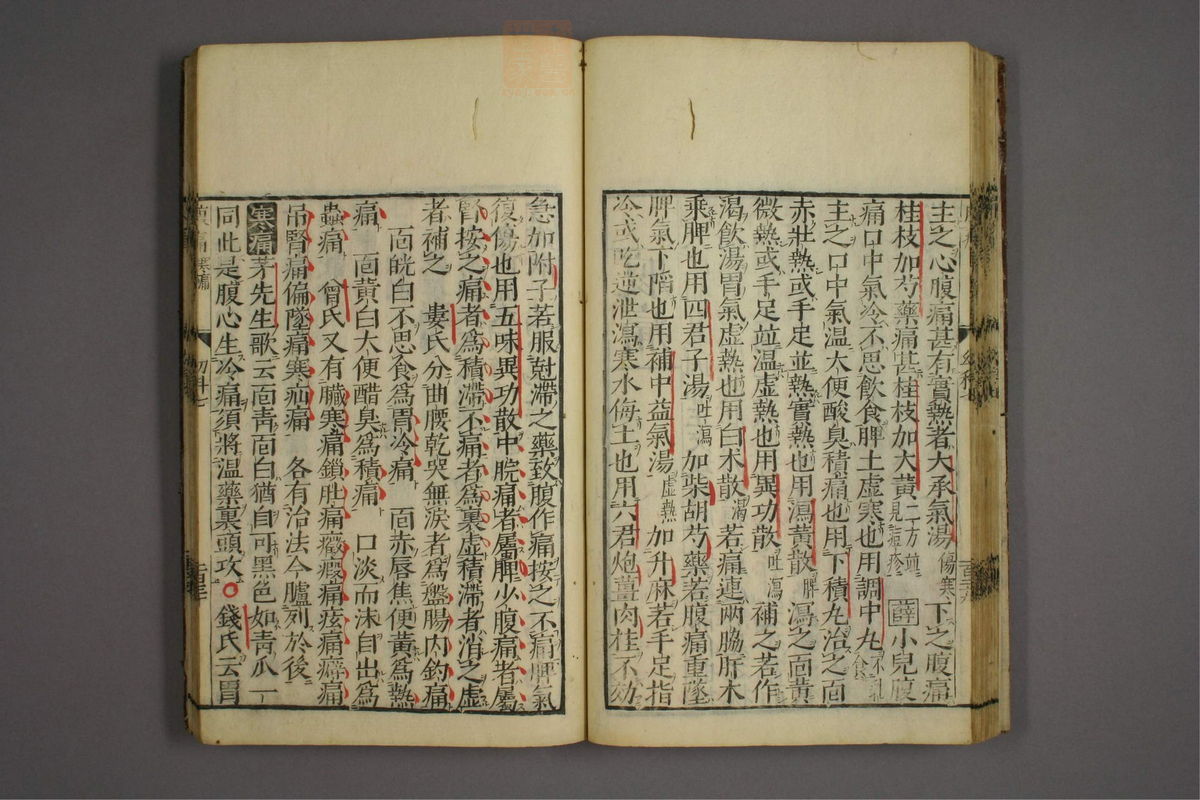 主之心腹痛甚有實熱者大承氣湯傷寒下之腹痛
桂枝加芍藥痛甚桂枝加大黃二方並見痘疹薛小兒腹
痛口中氣冷不思飲食脾土虛寒也用調中丸不乳食
主之口中氣溫大便酸臭積痛也用下積丸治之面
赤壯熱或手足並熱實熱也用瀉黃散脾瀉之面黃
微熱或手足並溫虛熱也用異功散吐瀉補之若作
渴飲湯胃氣虛熱也用白术散渴若痛連兩脇肝木
乘脾也用四君子湯吐瀉加柴胡芍藥若腹痛重墜
脾氣下陷也用補中益氣湯虛熱加升麻若手足指
冷或吃逆泄瀉寒水侮土也用六君炮薑肉桂不効
急加附子若服尅滯之藥致腹作痛按之不痛脾氣
復傷也用五味異功散中脘痛者屬脾少腹痛者屬
腎按之痛者爲積滯不痛者爲裏虛積滯者消之虛
者補之 婁氏分曲腰乾哭無淚者爲盤腸內釣痛
面㿠白不思食爲胃冷痛 面赤唇焦便黃爲熱
痛 面黃白大便醋臭爲積痛 口淡而沫自出爲
蟲痛 曾氏又有臟寒痛鎖肚痛癥瘕痛痃痛癖痛
吊腎痛偏墜痛寒疝痛 各有治法今臚列於後
寒痛茅先生歌云面青面白猶自可黑色如青瓜一
同此是腹心生冷痛須將溫藥裏頭攻○錢氏云胃